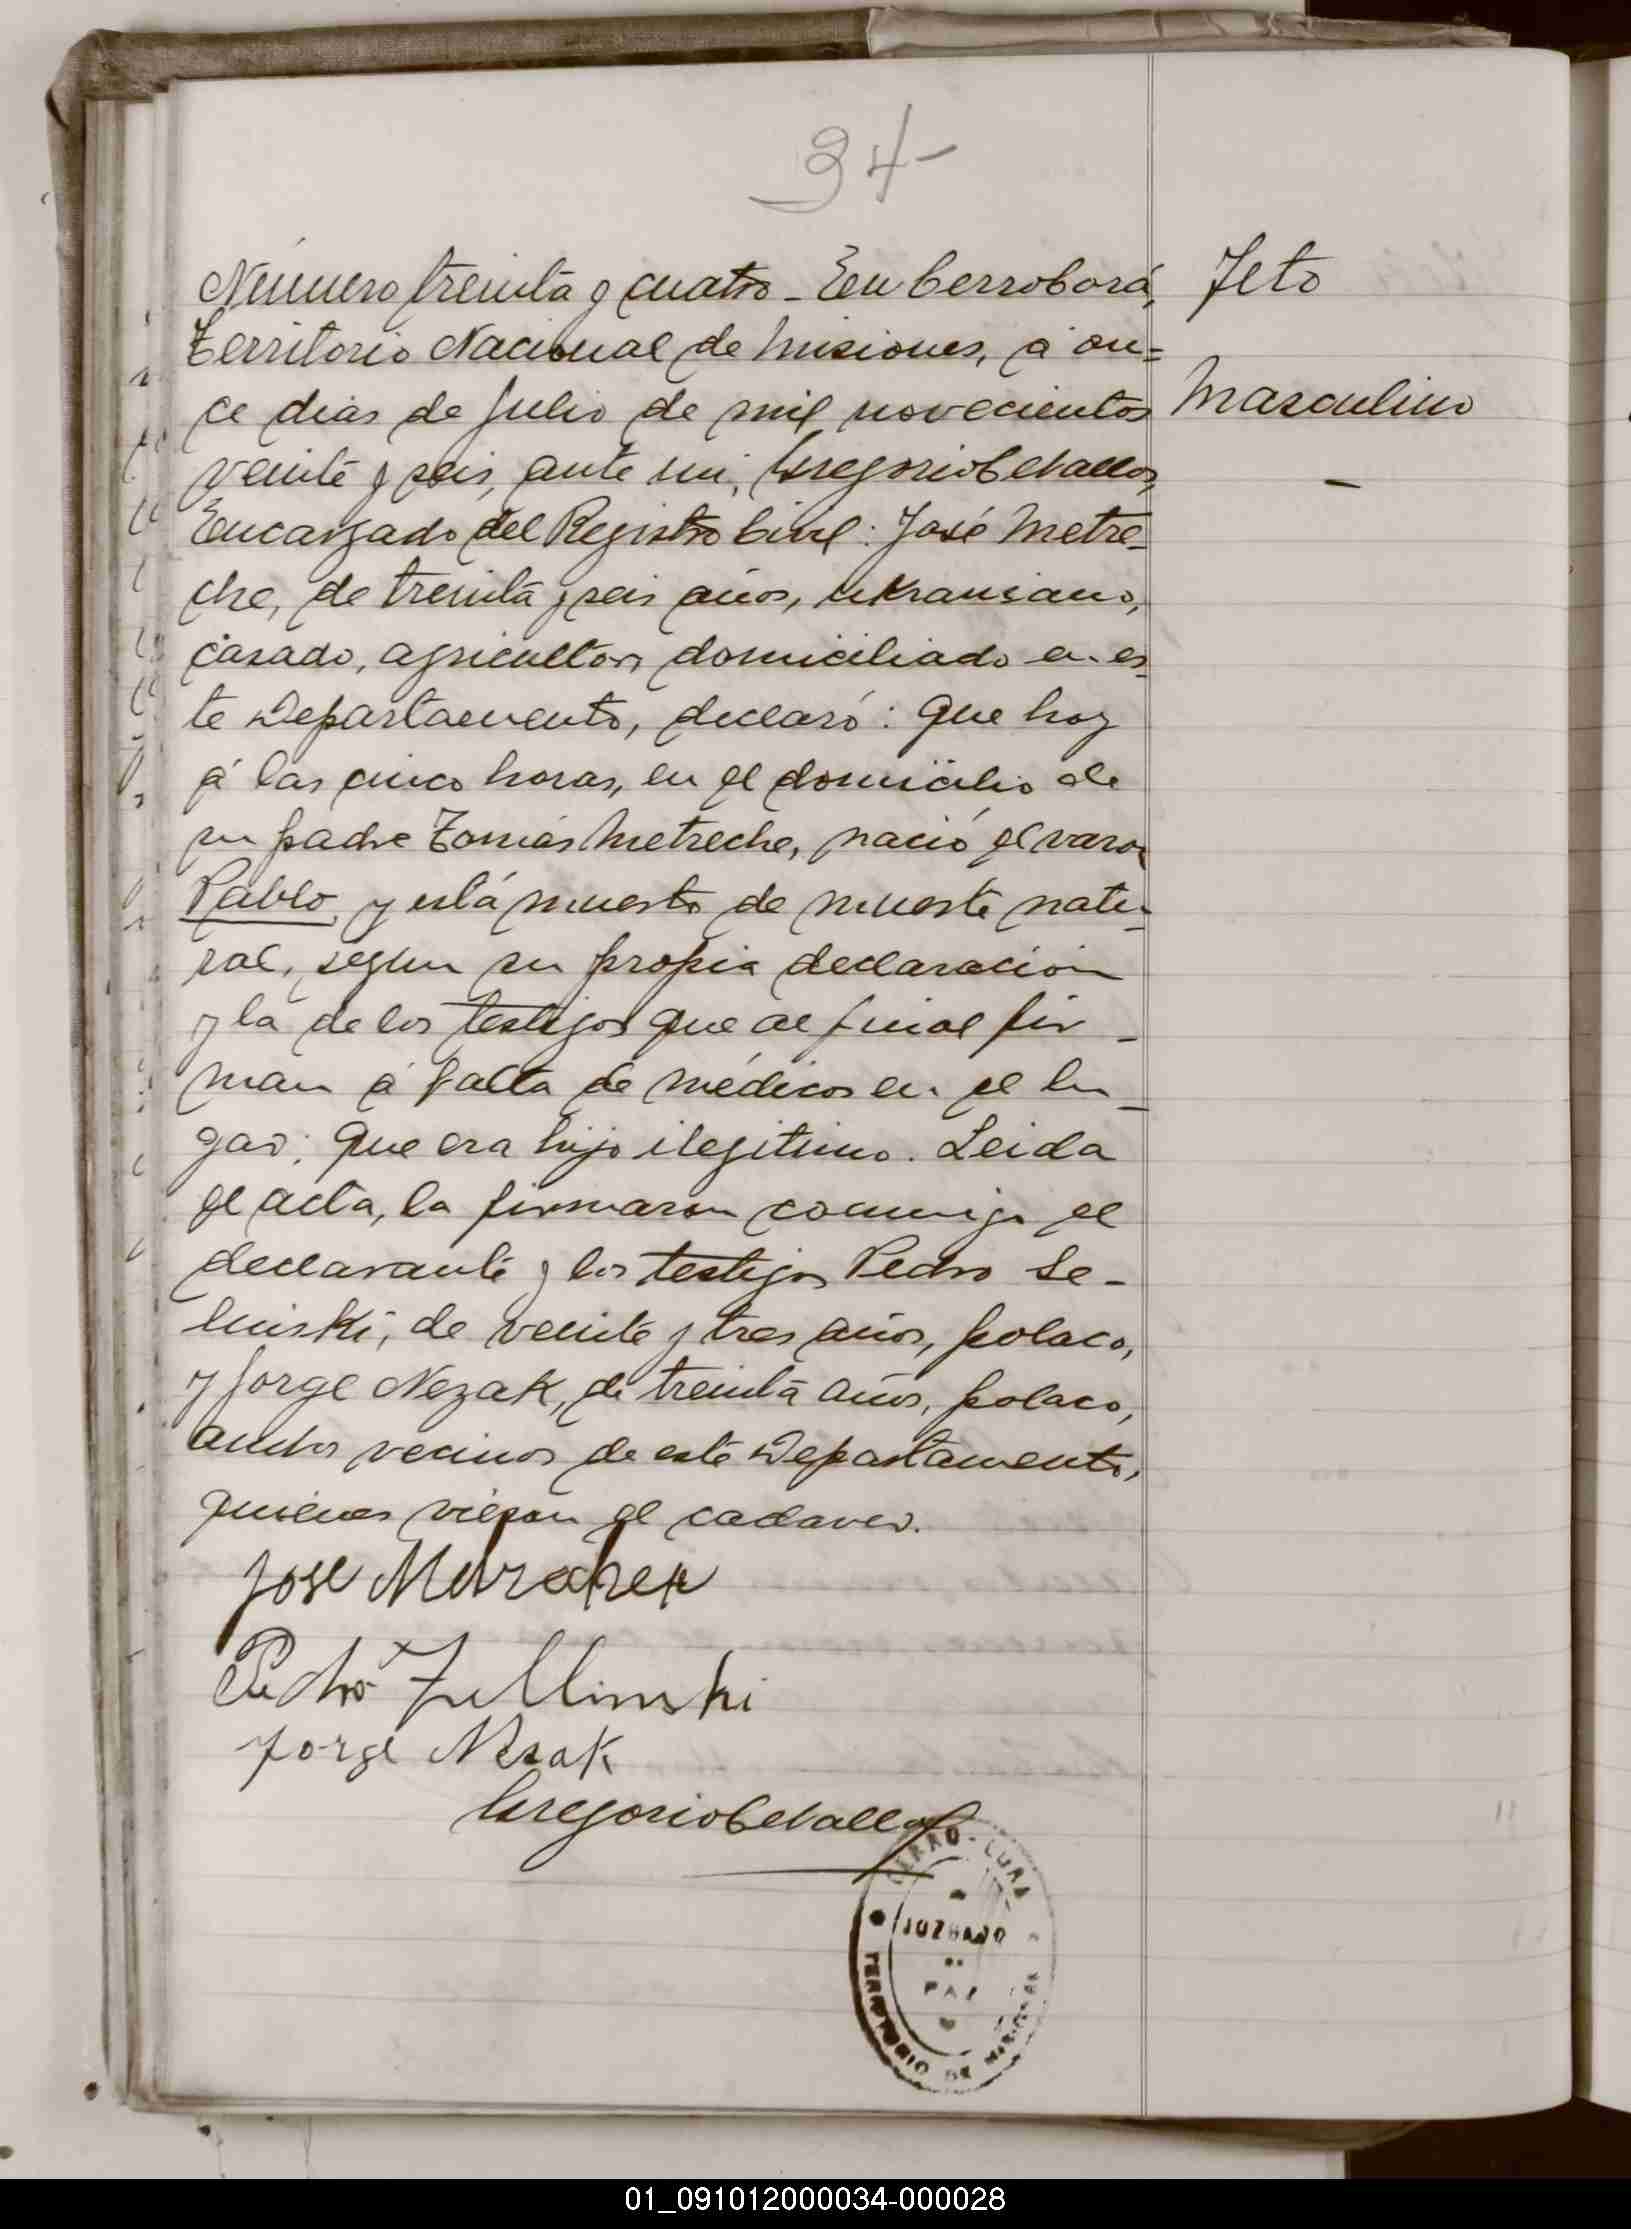 34-
Número treinta y cuatro - En Cerro Corá,
Territorio Nacional de Misiones, á on=
ce dias de Julio de mil novecientos
veinte y seis, ante mi, Gregorio Cevallos,
Encargado del Registro Civil: José Metre-
che, de treinta y seis años, ukraniano,
casado, agricultor, domiciliado en es-
te Departamento, declaró: Que hoy
á las cinco horas, en el domicilio de
su padre Tomás Metreche, nació el varon
Pablo y está muerto de muerte natu-
ral, segun su propia declaracion
y la de los testigos que al final fir-
man á falta de médicos en el lu-
gar; Que era hijo ilegitimo. Leida
el acta, la firmaron conmigo el
declarante y los testigos Pedro Se-
linski, de veinte y tres años, polaco,
y Jorge Nezak, de treinta años, polaco,
ambos vecinos de este Departamento,
quienes vieron el cadaver.
Feto
Masculino
-
Jose
Pedro
Jorge Nesak
Gregorio Cevallos
CERRO-CORÁ
JUZGADO
DE
PAZ
TERRITORIO DE MISIONES
01_091012000034-000028